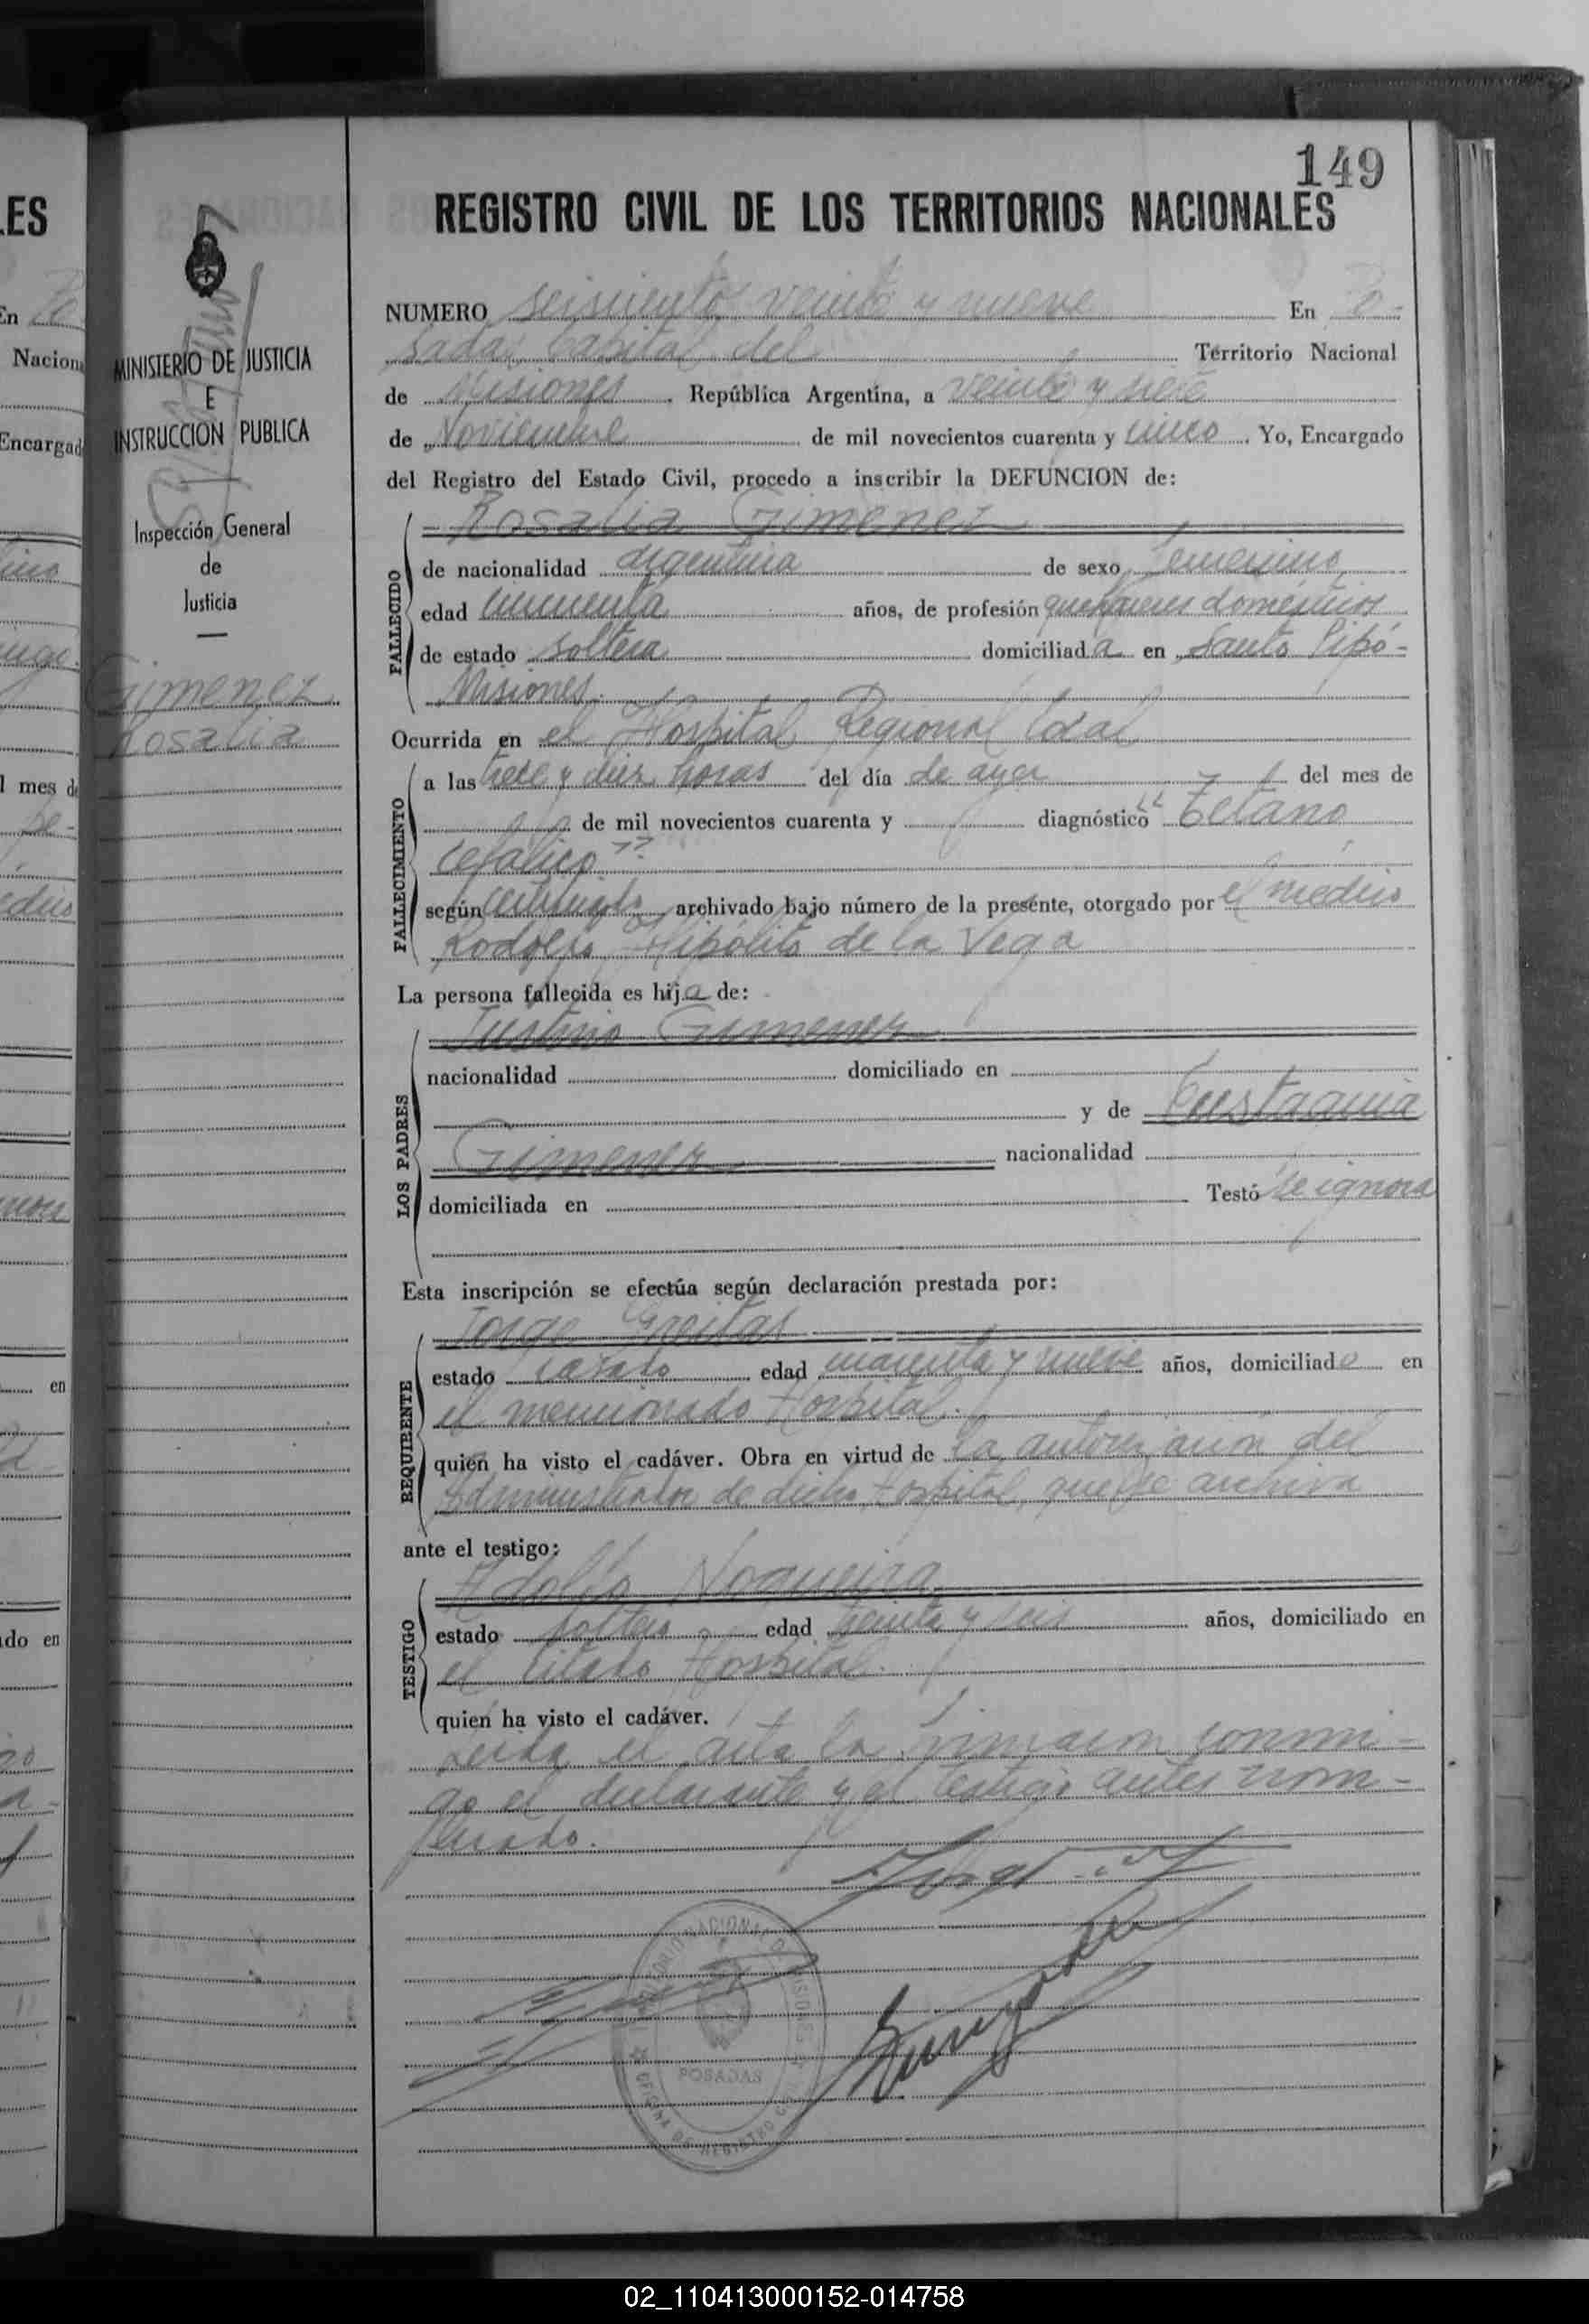 149
REGISTRO CIVIL DE LOS TERRITORIOS NACIONALES
NUMERO seiscientos veinte y nueve En Po-
sadas Capital del Territorio Nacional
de Misiones República Argentina, a veinte y siete
de Noviembre de mil novecientos cuarenta y cinco. Yo, Encargado
del Registro del Estado Civil, procedo a inscribir la DEFUNCION de:
Rosalia Gimenez
FALLECIDO
de nacionalidad argentina de sexo femenino
edad cincuenta años, de profesión quehaceres domésticos
de estado soltera domiciliada en Santo Pipó-
Misiones.
Ocurrida en el Hospital Regional local
FALLECIMIENTO
a las trece y diez horas del día de ayer del mes de
de mil novecientos cuarenta y diagnóstico "Tetano
cefalico"
según certificado archivado bajo número de la presente, otorgado por el medico
Rodolfo Hipólito de la Vega
La persona fallecida es hija de:
LOS PADRES
Justino Gimenez
nacionalidad domiciliado en
y de Eustaquia
Gimenez nacionalidad
domiciliada en Testó se ignora
Esta inscripción se efectúa según declaración prestada por:
REQUIRENTE
Jorge Freitas
estado casado edad cuarenta y nueve años, domiciliado en
el mencionado Hospital.
quien ha visto el cadáver. Obra en virtud de la autorizacion del
Administrador de dicho Hospital, que se archiva
ante el testigo:
TESTIGO
Adolfo Nogueira
estado soltero edad treinta y seis años, domiciliado en
el citado Hospital.
quien ha visto el cadáver.
Leida el acta la firmaron conmi-
go el declarante y el testigo antes nom-
brado.
POSADAS
MINISTERIO DE JUSTICIA
E
INSTRUCCION PUBLICA
Inspección General
de
Justicia
Gimenez
Rosalia
ES
En Po
Nacion
Encargad
l mes de
en
do en
02_110413000152-014758